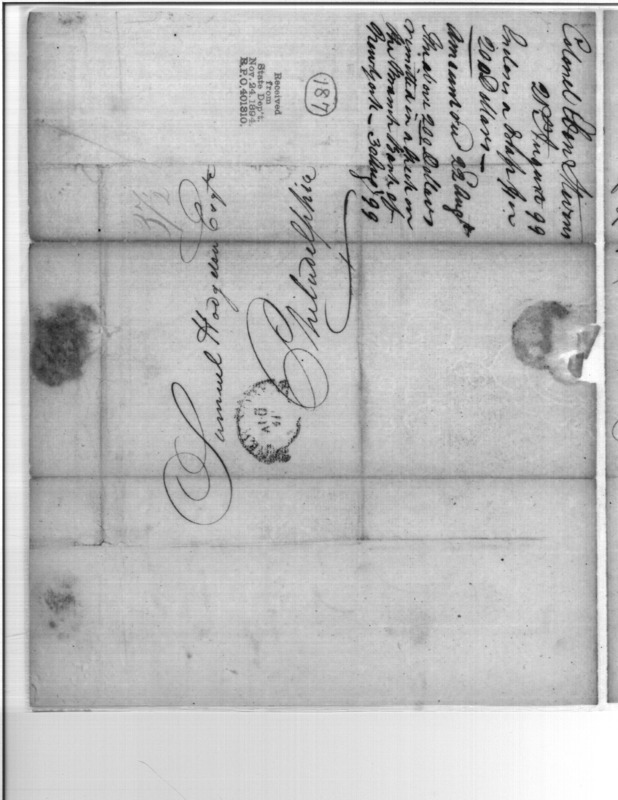 Colonel Eben Stevens
21st August 99
Encloses a draft for
200 Dollars
Answered 22d Augt
The above 200 Dollars
remitted in a check on
the Branch Bank of
New York - 30 Augt 99
(187)
Received
from
State Dep't.
Nov. 24, 1894.
R.P.O. 401810.
37½
Samuel Hodgdon Esqr
Philadelphia